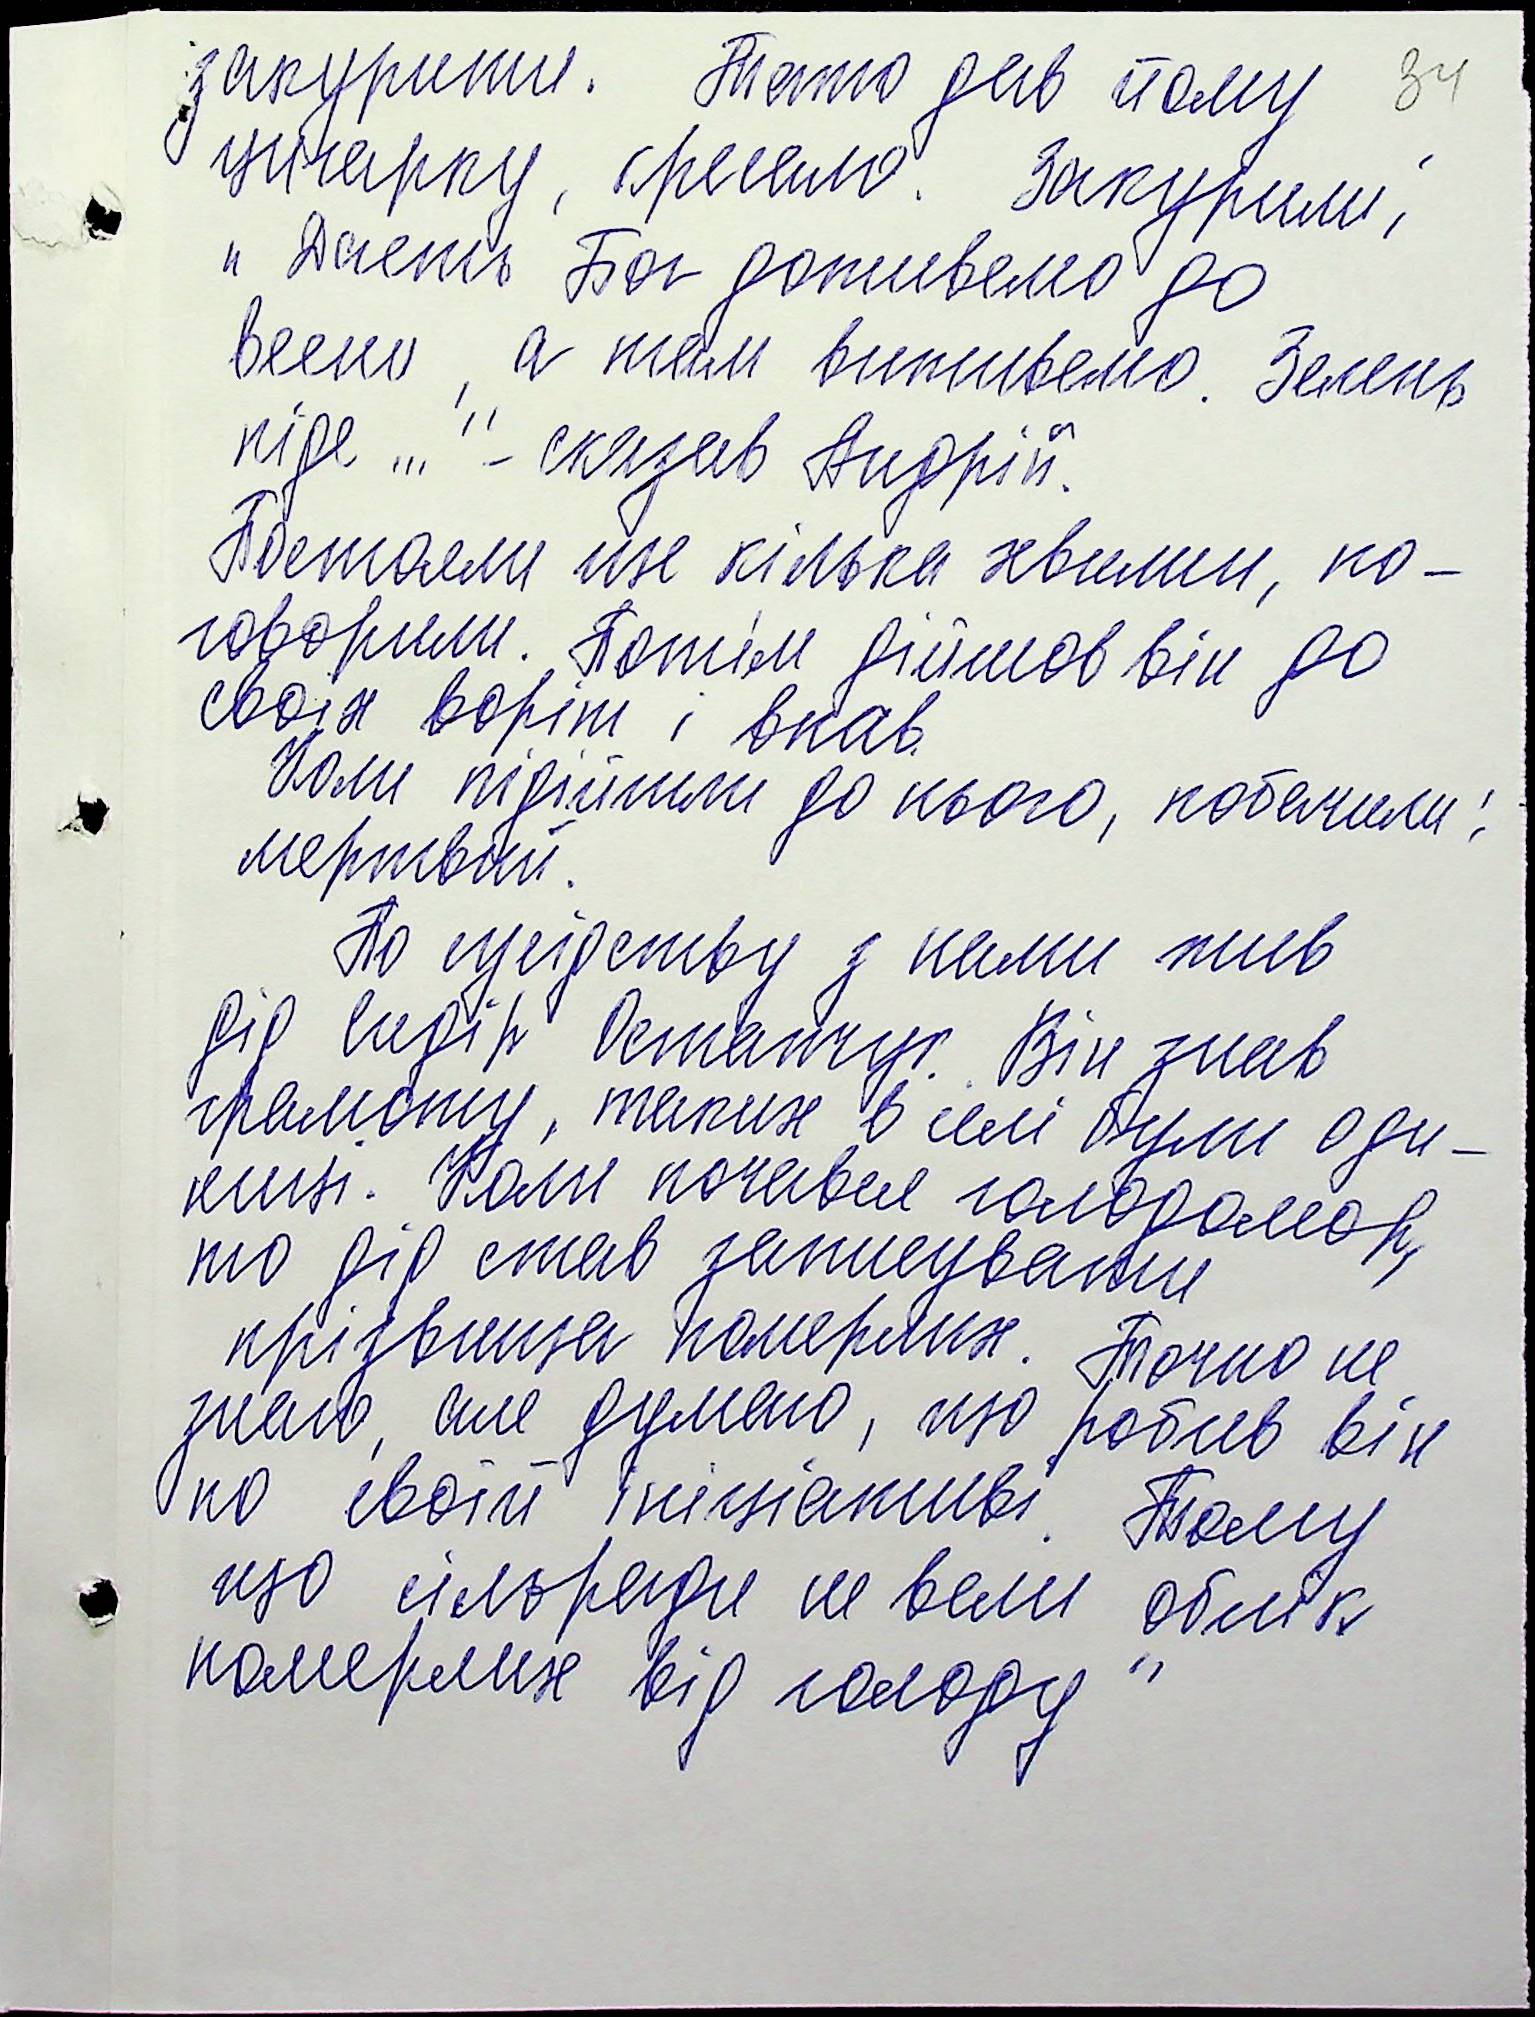 закурити. Тато дав йому 34
цигарку, кресало. Закурили,
" Даєть Бог доживемо до
весни, а там виживемо. Зелень
піде ..." - сказав Андрій.
Постояли ще кілька хвилин, по-
говорили. Потім дійшов він до
своїх воріт і впав.
Коли підійшли до нього, побачили:
мертвий.
По сусідству з нами жив
дід Сидір Остапчук. Він знав
грамоту, таких в селі були оди-
ниці. Коли почався голодомор,
то дід став записувати
прізвища померлих. Точно не
знаю, але думаю, що робив він
по своїй ініціативі. Тому
що сільради не вели облік
померлих від голоду"